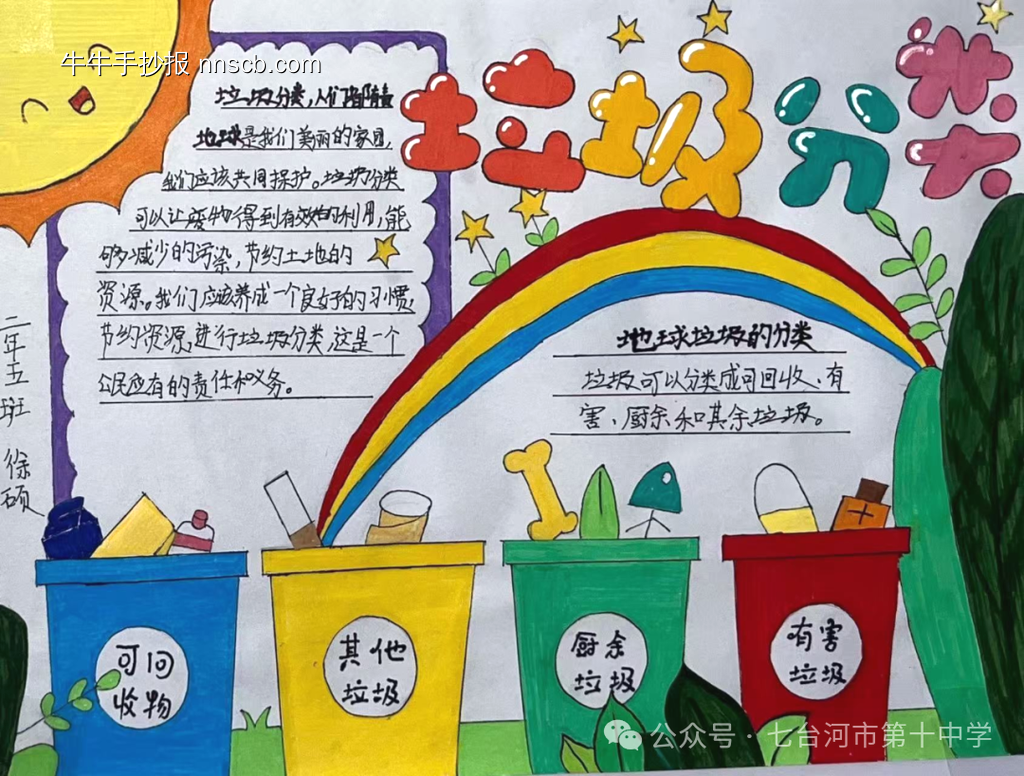 牛牛手抄报 nnscb.com
垃圾分类
垃圾分类,人们有责
地球是我们美丽的家园,
我们应该共同保护。垃圾分类
可以让废物得到有效的利用,能
够减少的污染,节约土地的
资源。我们应该养成一个良好的习惯,
节约资源,进行垃圾分类,这是一个
公民应有的责任和义务。
地球垃圾的分类
垃圾可以分类成可回收、有
害、厨余和其余垃圾。
二年五班 徐硕
可回
收物
其他
垃圾
厨余
垃圾
有害
垃圾
公众号·七台河市第十中学